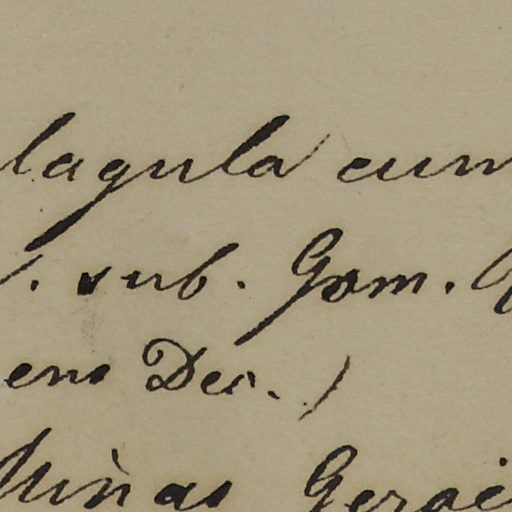 lagula cum
. sub. Gom.
ens Dec.)
Minas Gerae